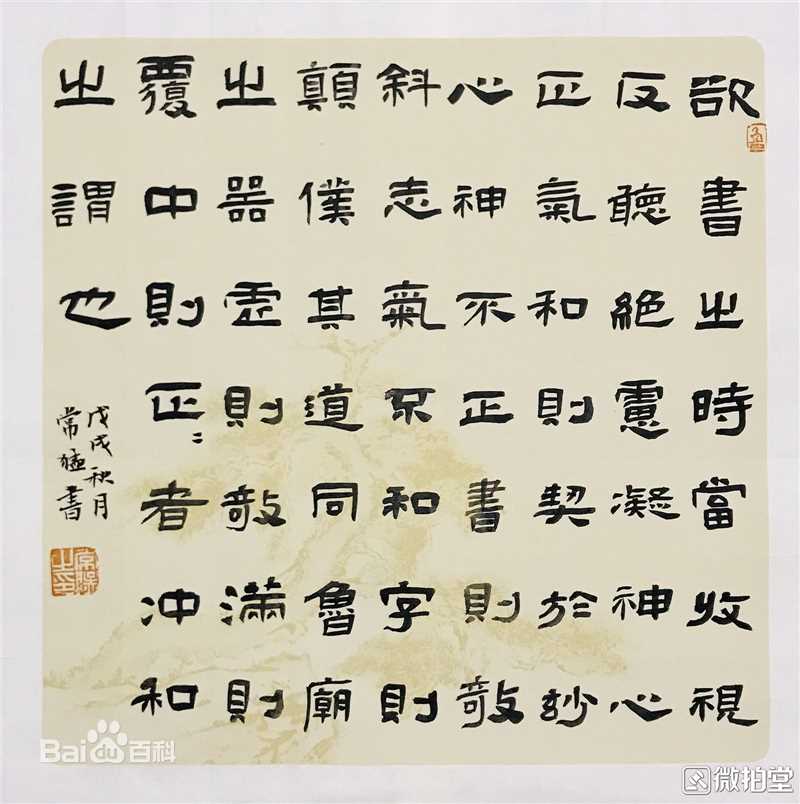 欲書之時當收視
反聽絕慮凝神心
正氣和則契於妙
心神不正書則敧
斜志氣不和字則
顛僕其道同魯廟
之器虛則敧滿則
覆中則正〻者冲和
之謂也
戊戌秋月
常猛書
Bai du 百科
微拍堂